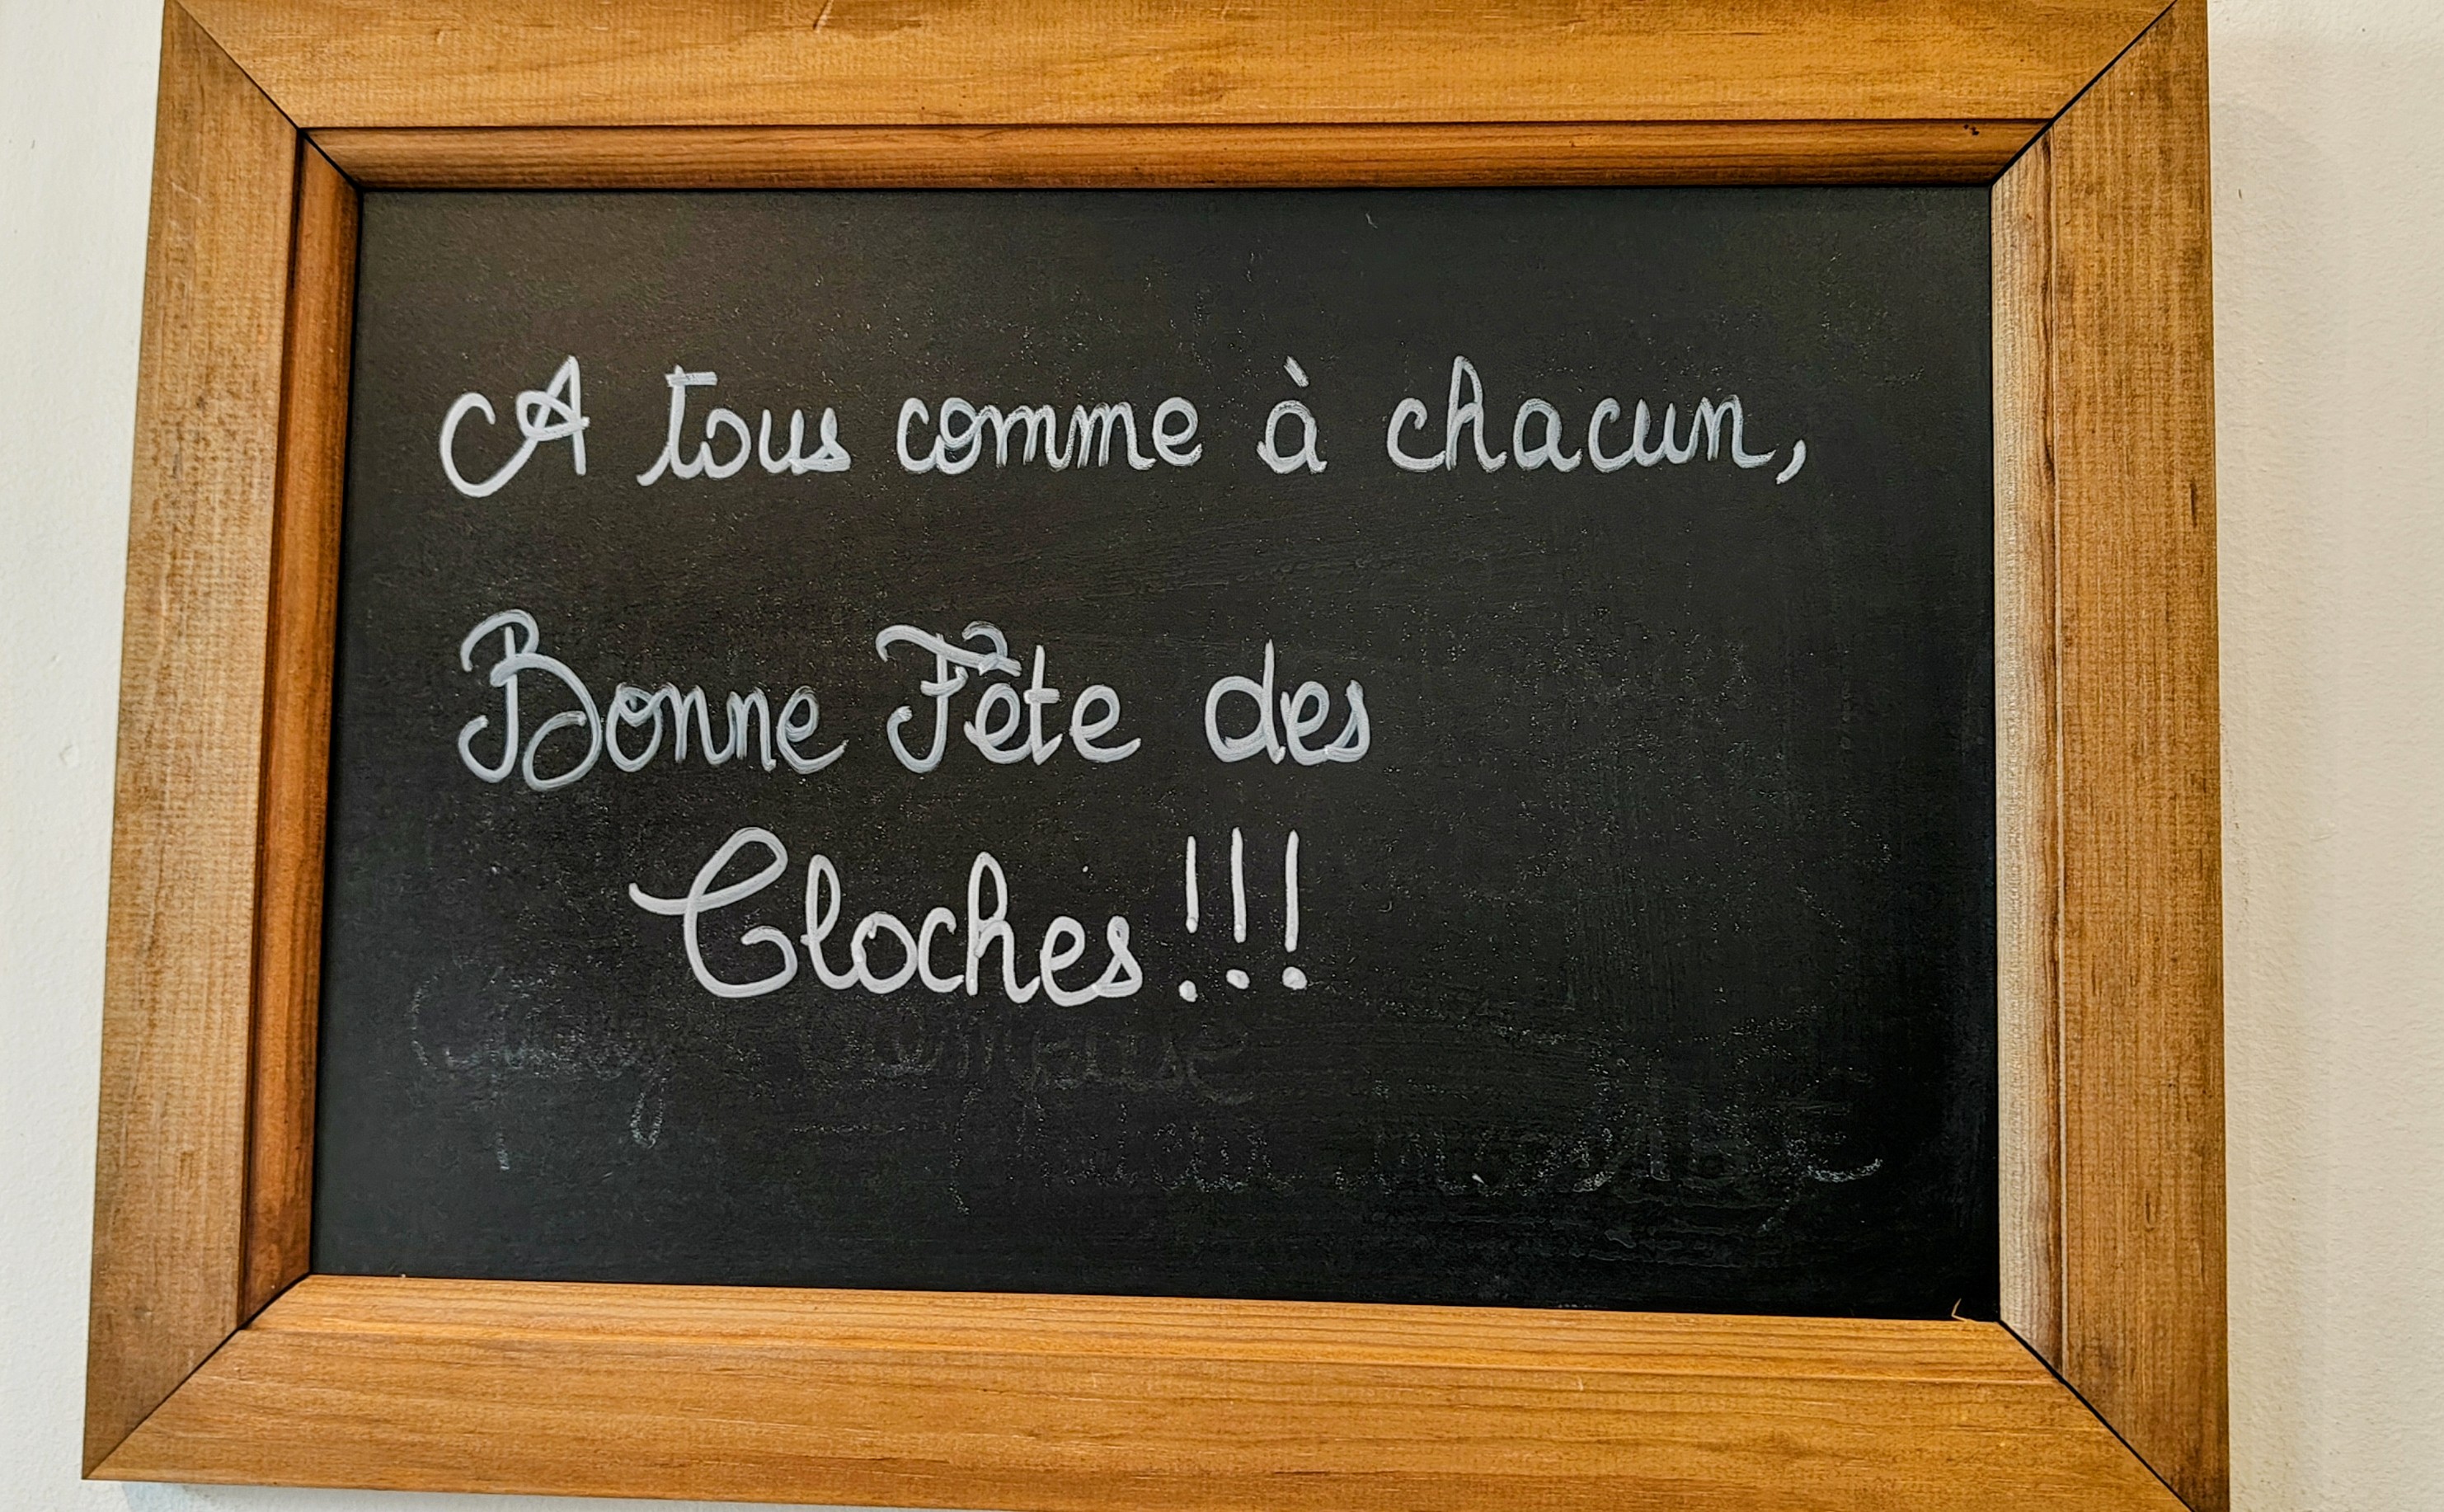 A tous comme à chacun,
Bonne Fête des
Cloches!!!